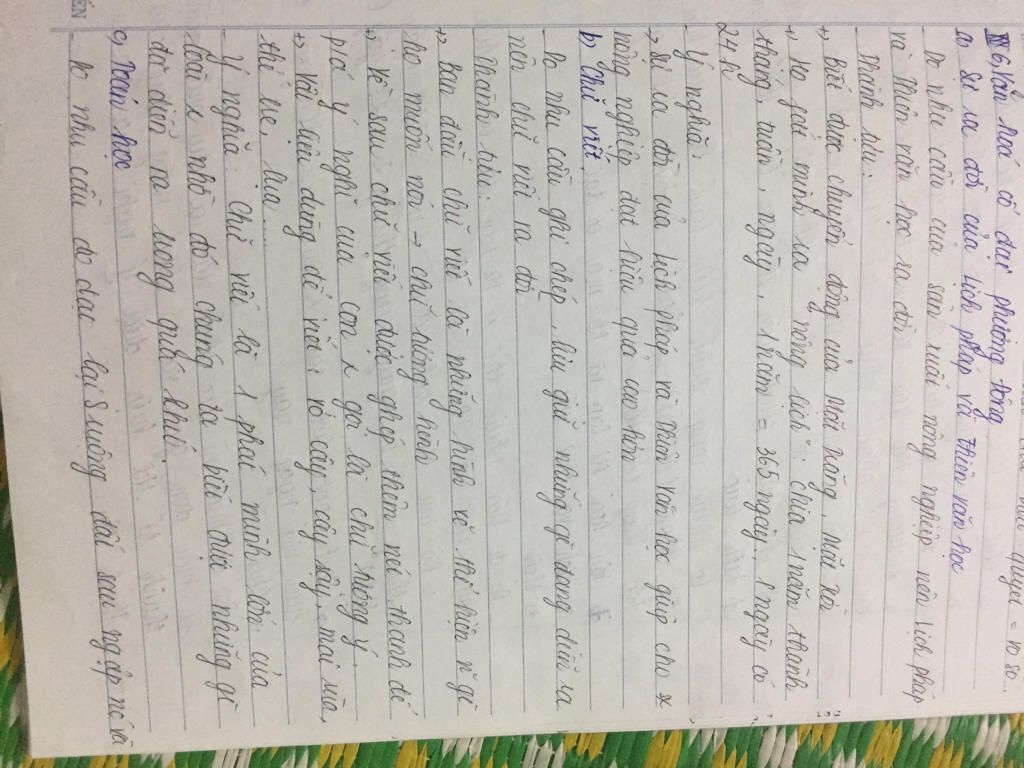 quyết = vô số.
III 6, Văn hoá cổ đại phương Đông
a) Sự ra đời của lịch pháp và thiên văn học
- Do nhu cầu của sản xuất nông nghiệp nên lịch pháp
và thiên văn học ra đời
- Thành tựu:
+) Biết được chuyển động của Mặt trăng, Mặt trời
+) Họ phát minh ra nông lịch: chia 1 năm thành
tháng, tuần, ngày, 1 năm = 365 ngày, 1 ngày có
24h
- Ý nghĩa:
→ Sự ra đời của lịch pháp và thiên văn học giúp cho sx
nông nghiệp đạt hiệu quả cao hơn
b) Chữ viết
- Do nhu cầu ghi chép, lưu giữ những gì đang diễn ra
nên chữ viết ra đời
- Thành tựu:
+) Ban đầu chữ viết là những hình vẽ thể hiện n~ gì
họ muốn nói → chữ tượng hình
+) Về sau chữ viết được ghép thêm nói thanh để
phá ý nghĩ của con x gọi là chữ tượng ý
+) Vật liệu dùng để viết: vỏ cây, cây sậy, mai rùa,
thẻ tre, lụa...
- Ý nghĩa: Chữ viết là 1 phát minh lớn của
loài x nhờ đó chúng ta biết được những gì
đã diễn ra trong quá khứ.
c) Toán học
- Do nhu cầu đo đạc lại ruộng đất sau ngập và
EN